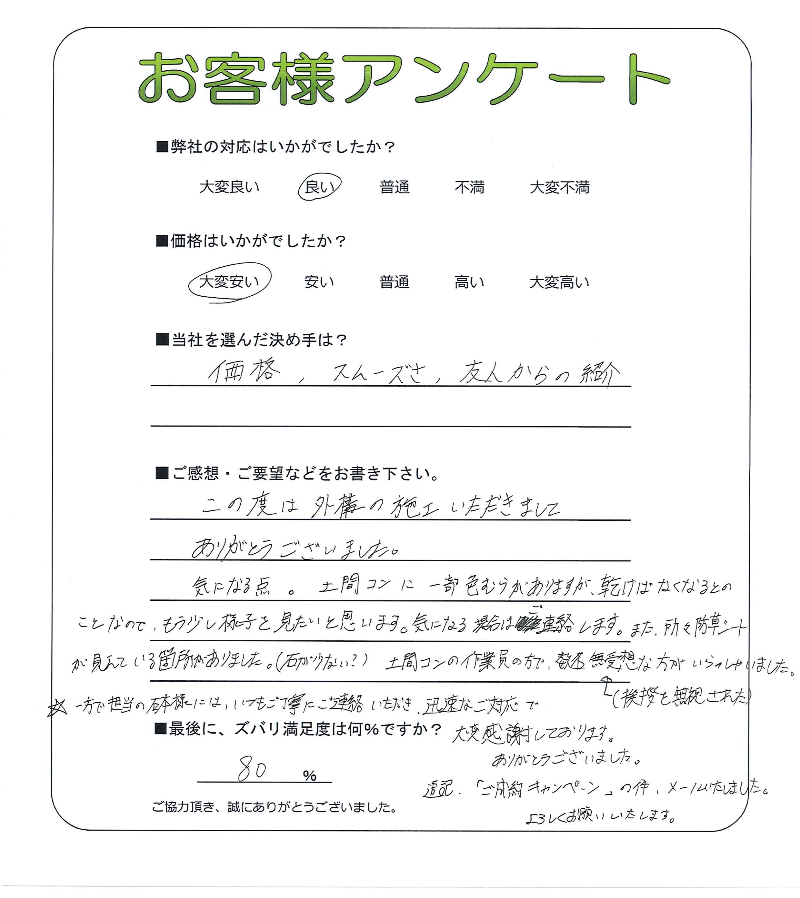 お客様アンケート
■弊社の対応はいかがでしたか？
大変良い 良い 普通 不満 大変不満
■価格はいかがでしたか？
大変安い 安い 普通 高い 大変高い
■当社を選んだ決め手は？
価格，スムーズさ，友人からの紹介
■ご感想・ご要望などをお書き下さい。
この度は外構の施工いただきまして
ありがとうございました。
気になる点。土間コンに一部色むらがありますが、乾けばなくなるとの
ことなので、もう少し様子を見たいと思います。気になる場合はご連絡します。また、所々防草シート
が見えている箇所がありました。(石が少ない？) 土間コンの作業員の方で、無愛想な方がいらっしゃいました。
(挨拶を無視された)
☆一方で担当の様には、いつもご丁寧にご連絡いただき、迅速なご対応で
■最後に、ズバリ満足度は何%ですか？ 大変感謝しております。
ありがとうございました。
80 %
追記．「ご成約キャンペーン」の件、メールいたしました。
ご協力頂き、誠にありがとうございました。
よろしくお願いいたします。